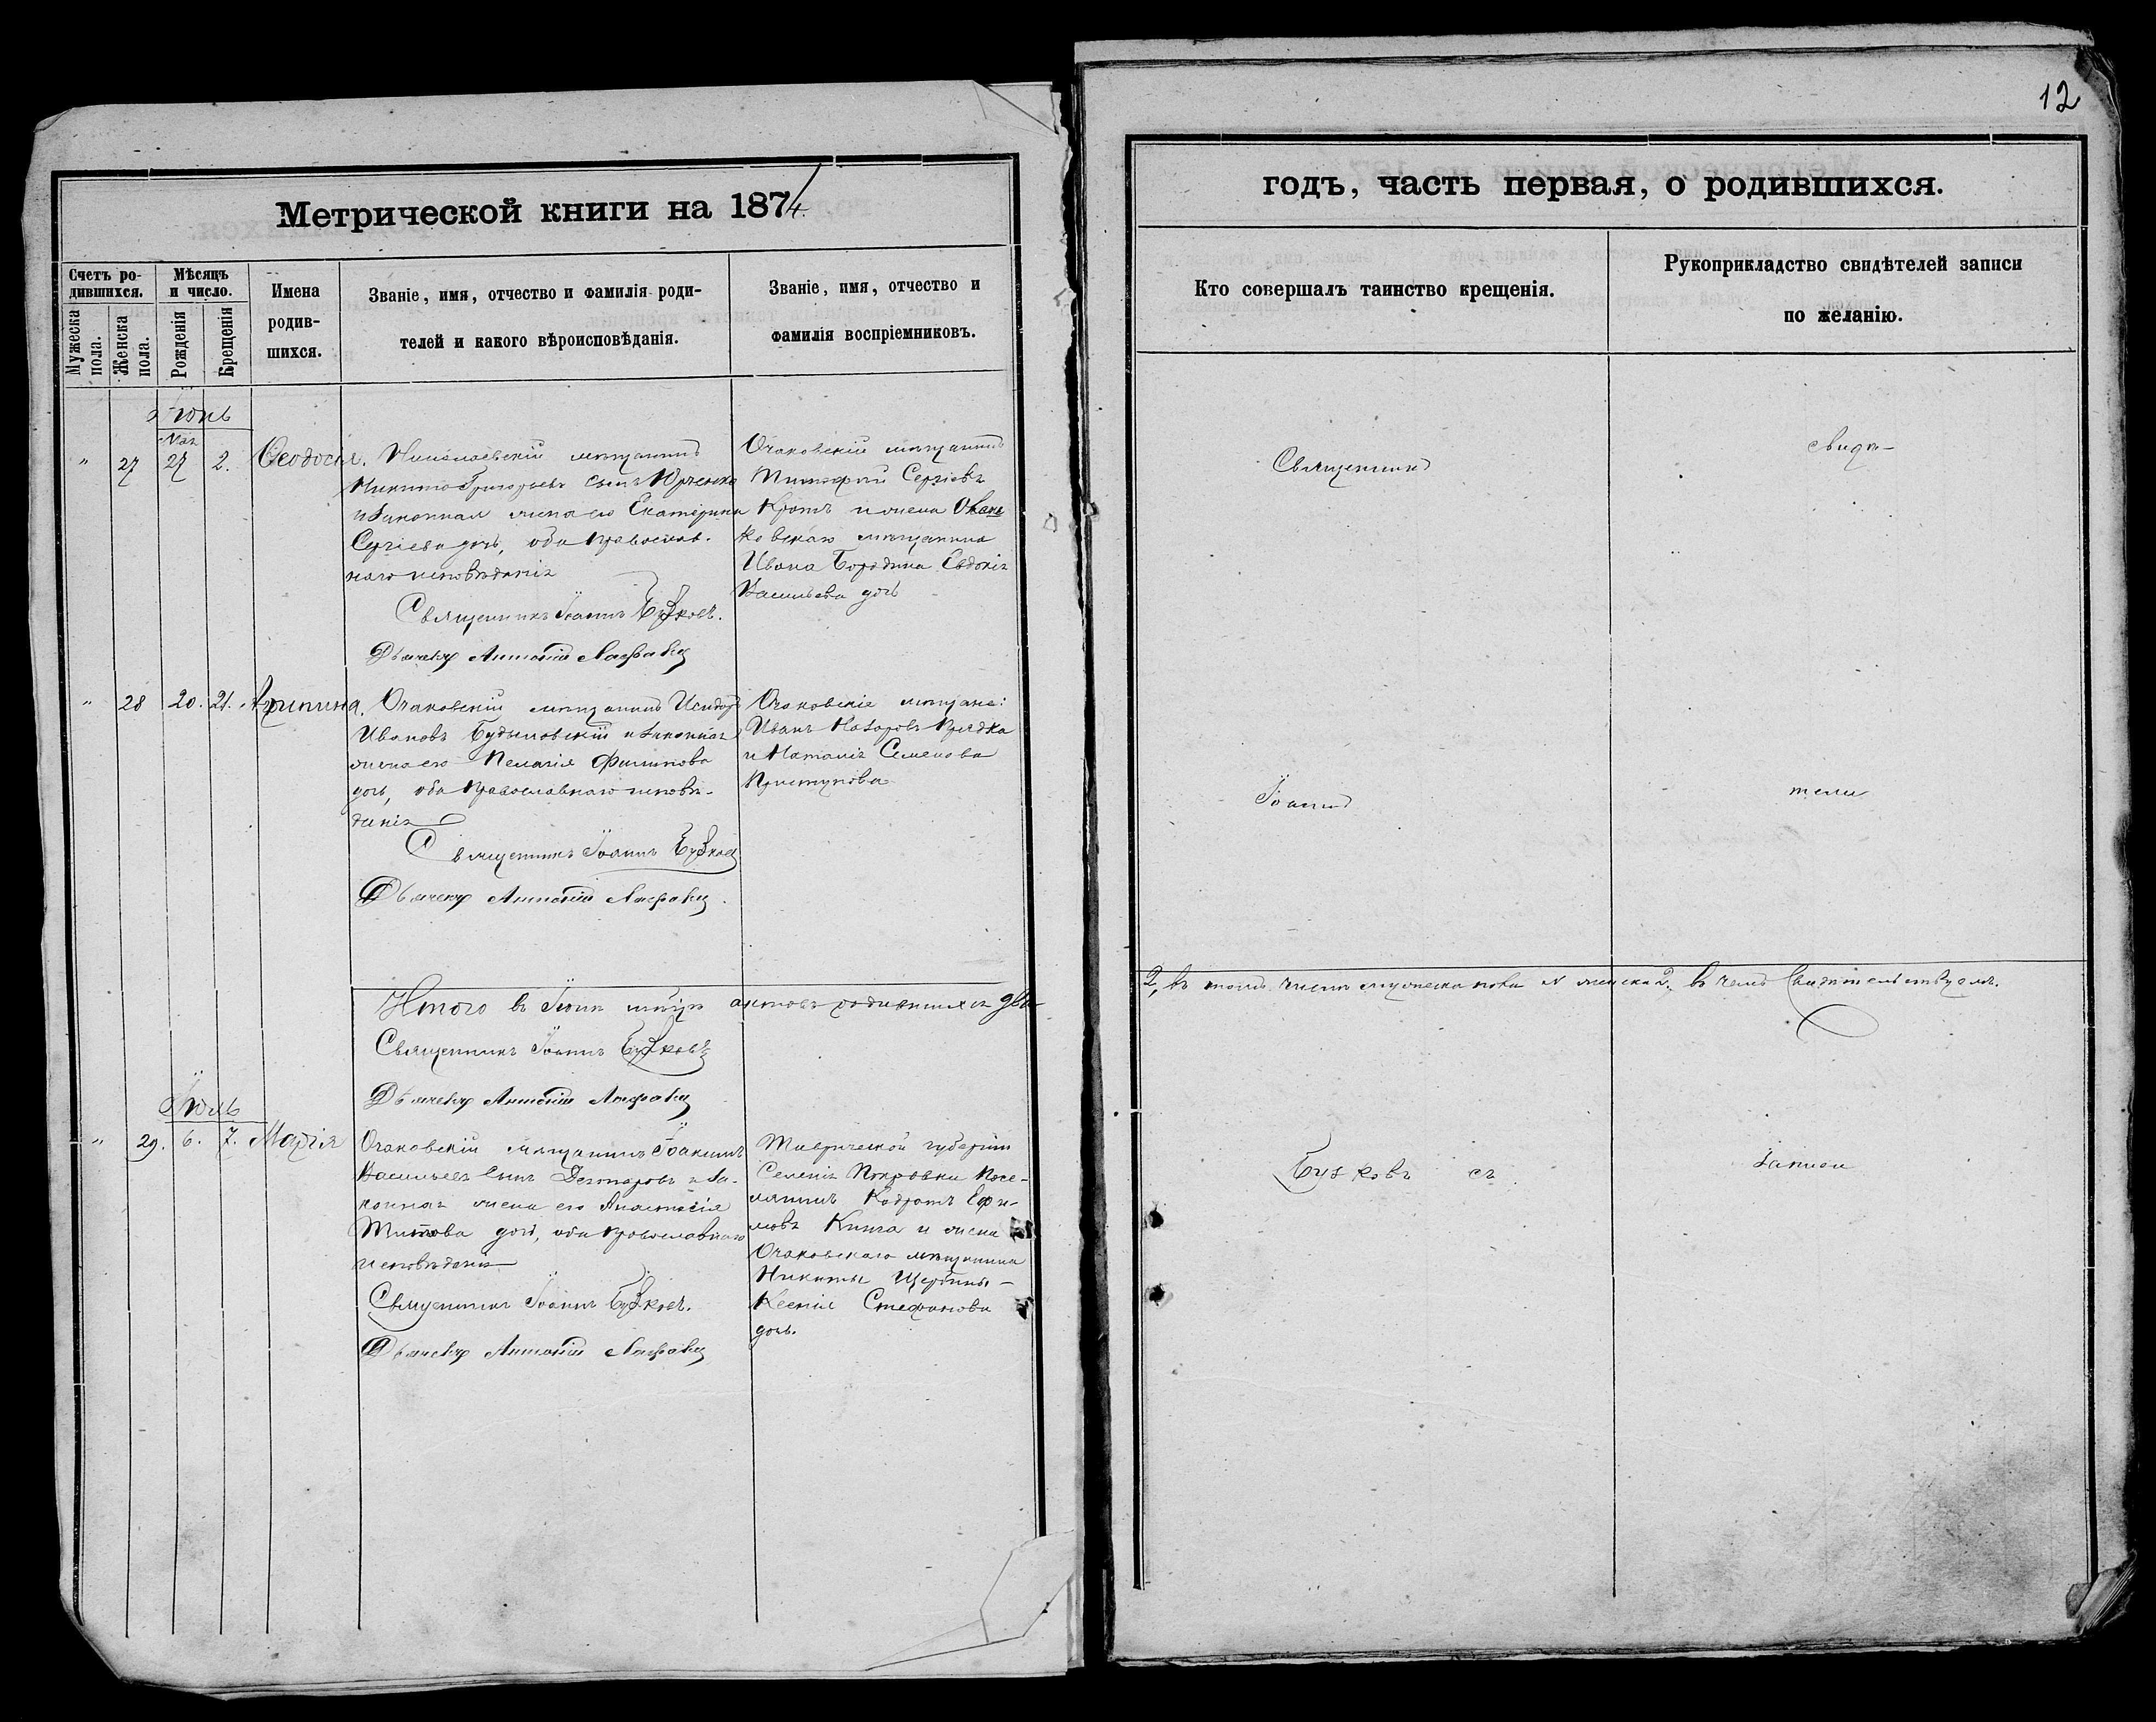 12
Метрической книги на 1874.
годъ, часть первая, о родившихся.
Счетъ ро-
дившихся.
Мужеска пола.
Женска пола.
Мѣсяцъ
и число.
Рожденія
Крещенія
Имена
родив-
шихся.
Званіе, имя, отчество и фамилія роди-
телей и какого вѣроисповѣданія.
Званіе, имя, отчество и
фамилія воспріемниковъ.
Кто совершалъ таинство крещенія.
Рукоприкладство свидѣтелей записи
по желанію.
Іюнь
Мая
" 27 27 2. Феодосія.
Николаевскій мѣщанинъ
Никита Григорьевъ сынъ Юрченко
и законная жена его Екатерина
Сергіева дочь, оба православ-
наго исповѣданія
Священникъ Іоаннъ Бузковъ.
Дьячекъ Антоній
Очаковскій мѣщанинъ
Сергіевъ
Кротъ и жена Очако
ковскаго мѣщанина
Ивана Бородина Евдокія
Васильева дочь
Священникъ
свидѣ-
" 28 20. 21. Агрипина.
Очаковскій мѣщанинъ Исидоръ
Ивановъ и законная
жена его Пелагія Филипова
дочь, оба православнаго исповѣ-
данія
Священникъ Іоаннъ Бузковъ
Дьячекъ Антоній
Очаковскіе мѣщане:
Иванъ Назаровъ
и Наталія Семенова
Приступова
Іоаннъ
тели
Итого въ Іюнѣ мѣсяцѣ актовъ родившихся два
2, въ томъ числѣ мужеска пола и женска 2. въ чемъ свидѣтельствуемъ.
Священникъ Іоаннъ Бузковъ
Дьячекъ Антоній
Іюль
" 29. 6. 7. Марія
Очаковскій мѣщанинъ Іоакимъ
Васильевъ сынъ и за-
конная жена его Анастасія
Титова дочь, оба православнаго
исповѣданія
Священникъ Іоаннъ Бузковъ.
Дьячекъ Антоній
Таврической губерніи
Селенія Покровки посе-
лянинъ Кодратъ Ефи-
мовъ Книга и жена
Очаковскаго мѣщанина
Никиты Щербины -
Ксенія Стефанова
дочь.
Бузковъ съ
записи